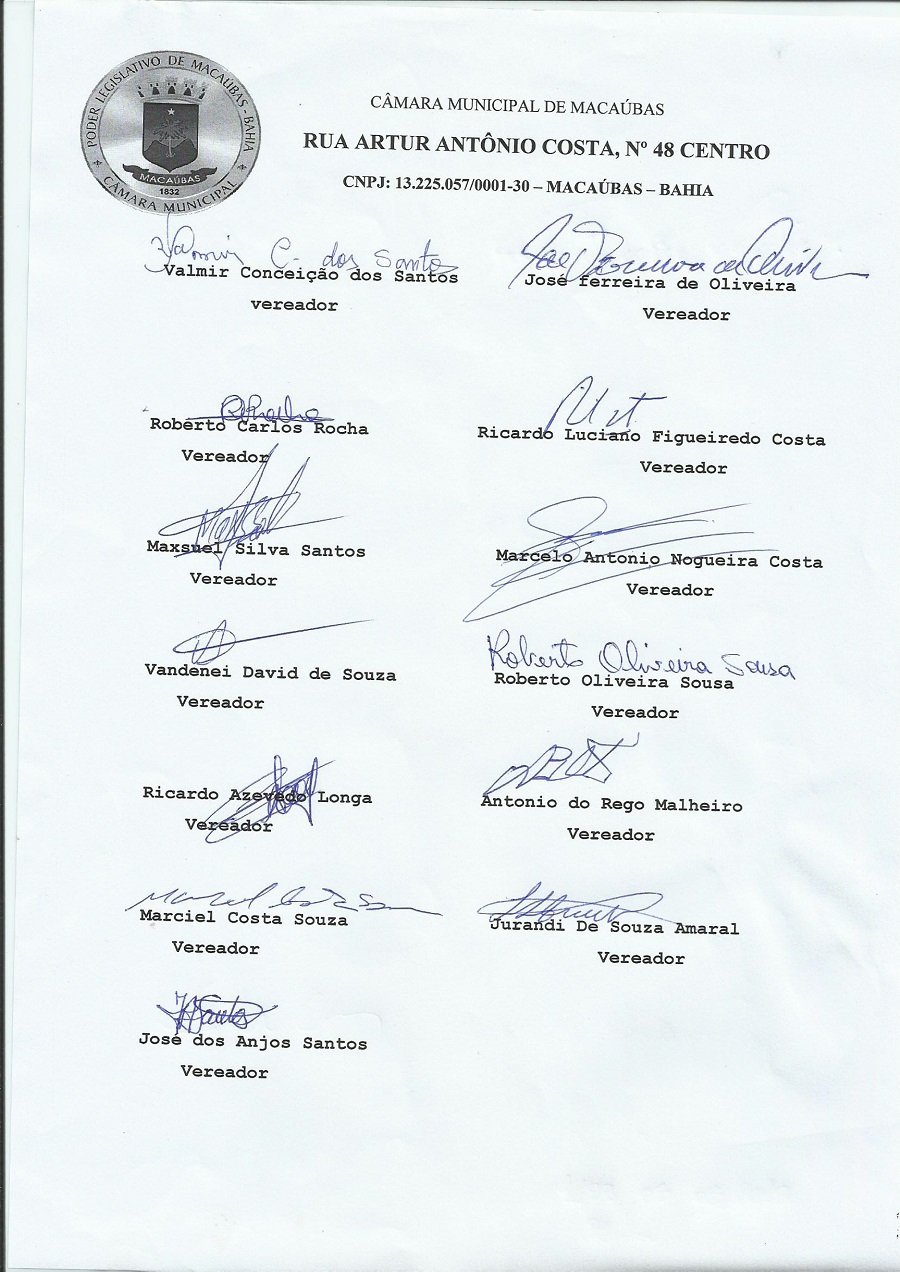 PODER LEGISLATIVO DE MACAÚBAS - BAHIA
CÂMARA MUNICIPAL
MACAÚBAS
1832
CÂMARA MUNICIPAL DE MACAÚBAS
RUA ARTUR ANTÔNIO COSTA, Nº 48 CENTRO
CNPJ: 13.225.057/0001-30 – MACAÚBAS – BAHIA
Valmir C. dos Santos
Valmir Conceição dos Santos
vereador
José ferreira de Oliveira
Vereador
Roberto Carlos Rocha
Vereador
Ricardo Luciano Figueiredo Costa
Vereador
Maxsuel Silva Santos
Vereador
Marcelo Antonio Nogueira Costa
Vereador
Vandenei David de Souza
Vereador
Roberto Oliveira Sousa
Roberto Oliveira Sousa
Vereador
Ricardo Azevedo Longa
Vereador
Antonio do Rego Malheiro
Vereador
Marciel Costa Souza
Vereador
Jurandi De Souza Amaral
Vereador
José dos Anjos Santos
Vereador